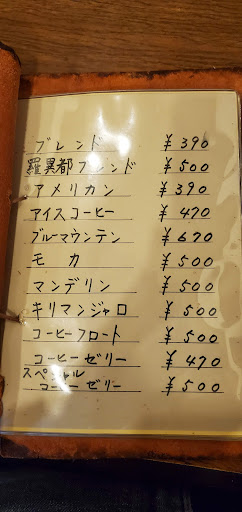 ブレンド ¥390
羅異都ブレンド ¥500
アメリカン ¥390
アイスコーヒー ¥470
ブルーマウンテン ¥670
モカ ¥500
マンデリン ¥500
キリマンジャロ ¥500
コーヒーフロート ¥500
コーヒーゼリー ¥470
スペシャル
コーヒーゼリー ¥500